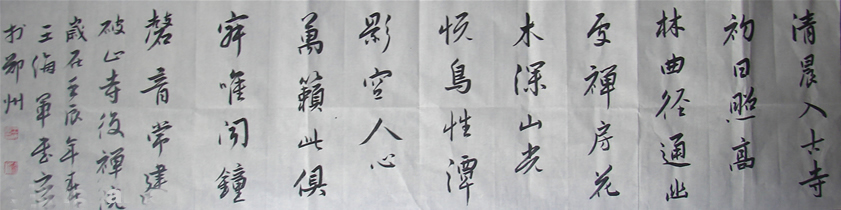 清晨入古寺
初日照高
林曲径通幽
处禅房花
木深山光
悦鳥性潭
影空人心
萬籟此俱
寂唯闻鐘
磬音常建
破山寺後禅院
歲在壬辰年春
王海军书
於郑州